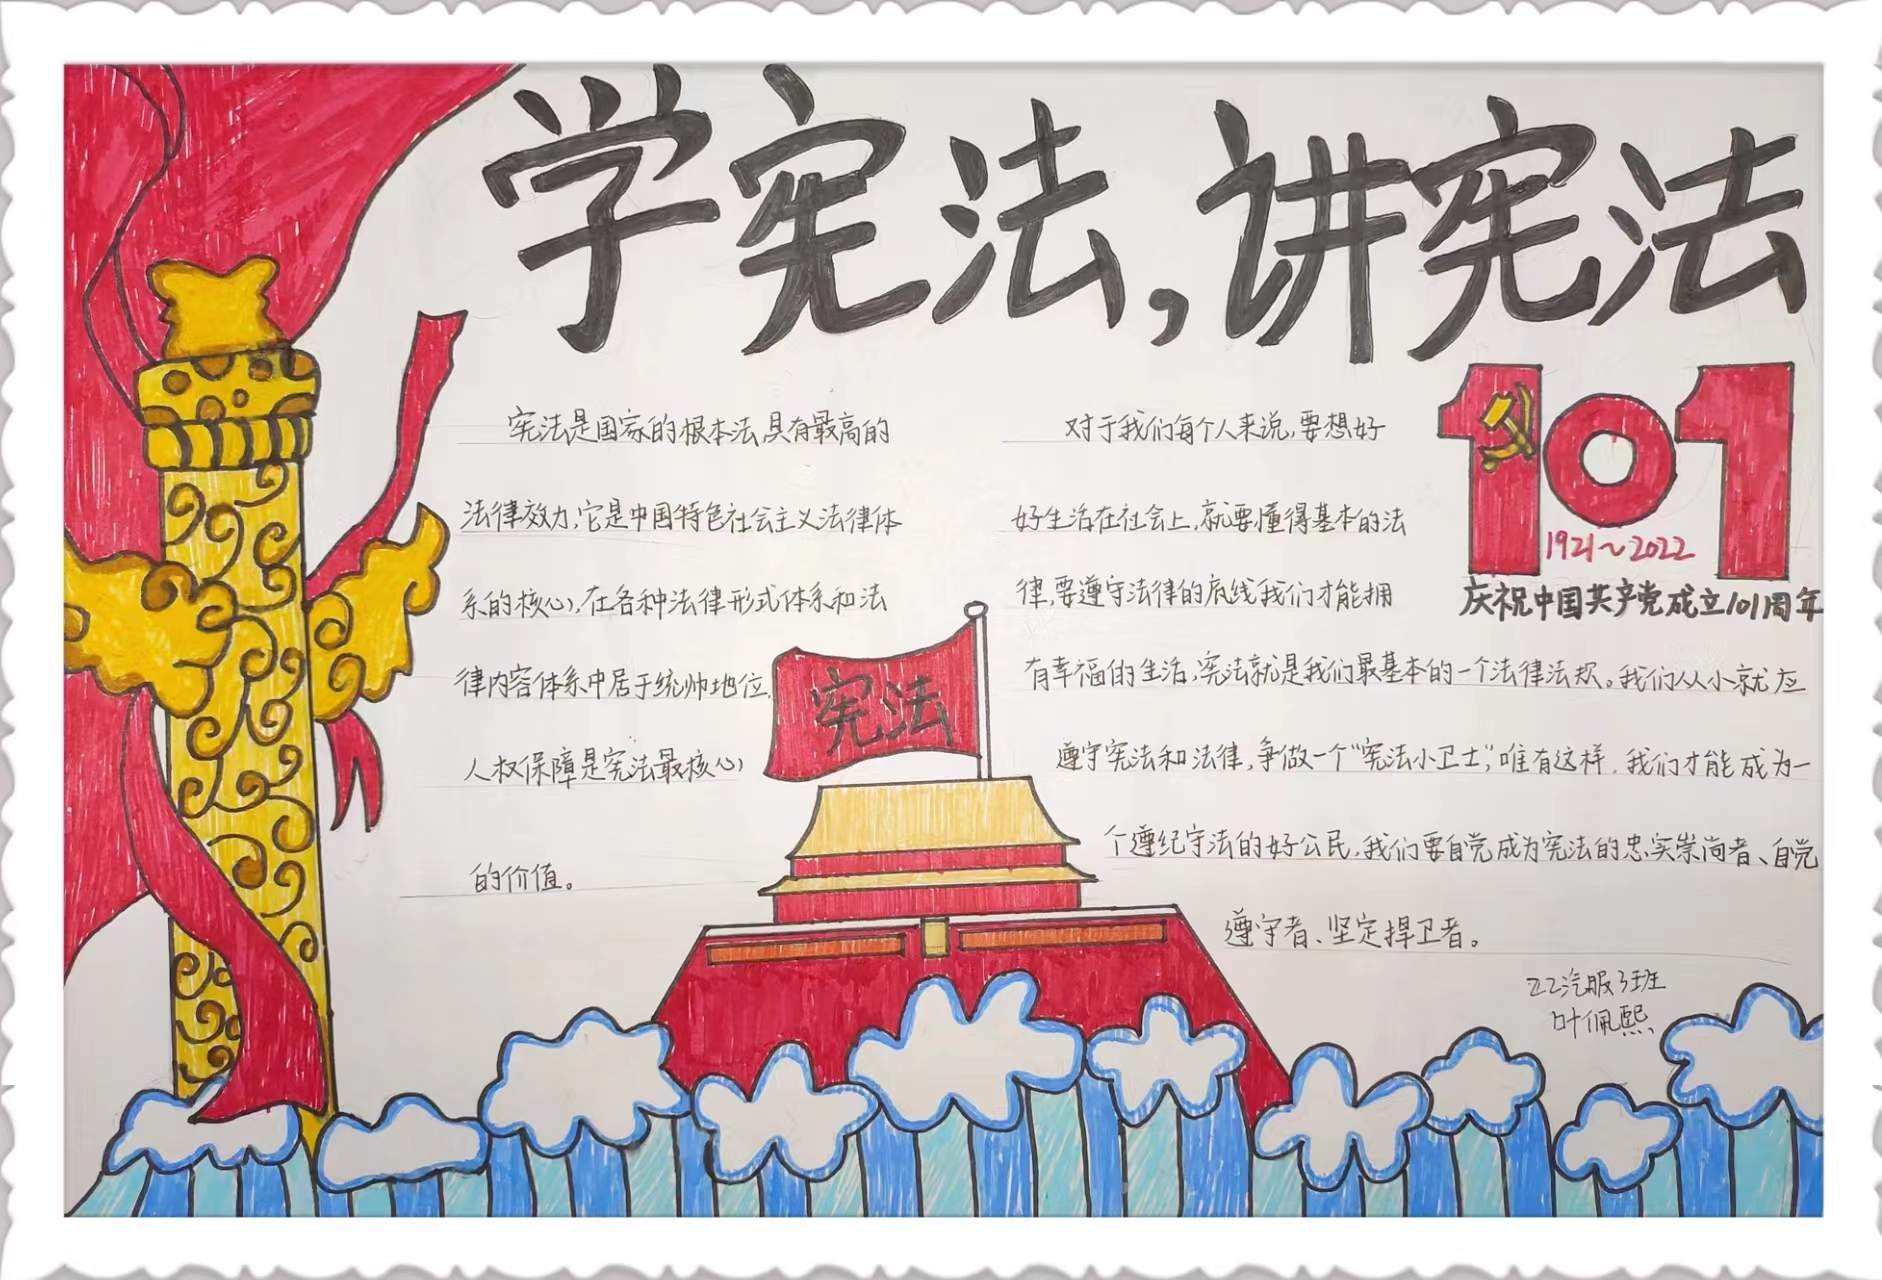 学宪法,讲宪法
宪法是国家的根本法,具有最高的
法律效力,它是中国特色社会主义法律体
系的核心,在各种法律形式体系和法
律内容体系中居于统帅地位,
人权保障是宪法最核心
的价值。
宪法
对于我们每个人来说,要想好
好生活在社会上,就要懂得基本的法
律,要遵守法律的底线我们才能拥
有幸福的生活,宪法就是我们最基本的一个法律法规。我们从小就应
遵守宪法和法律,争做一个“宪法小卫士”,唯有这样,我们才能成为一
个遵纪守法的好公民,我们要自觉成为宪法的忠实崇尚者、自觉
遵守者、坚定捍卫者。
101
1921~2022
庆祝中国共产党成立101周年
22汽服3班
叶佩熙